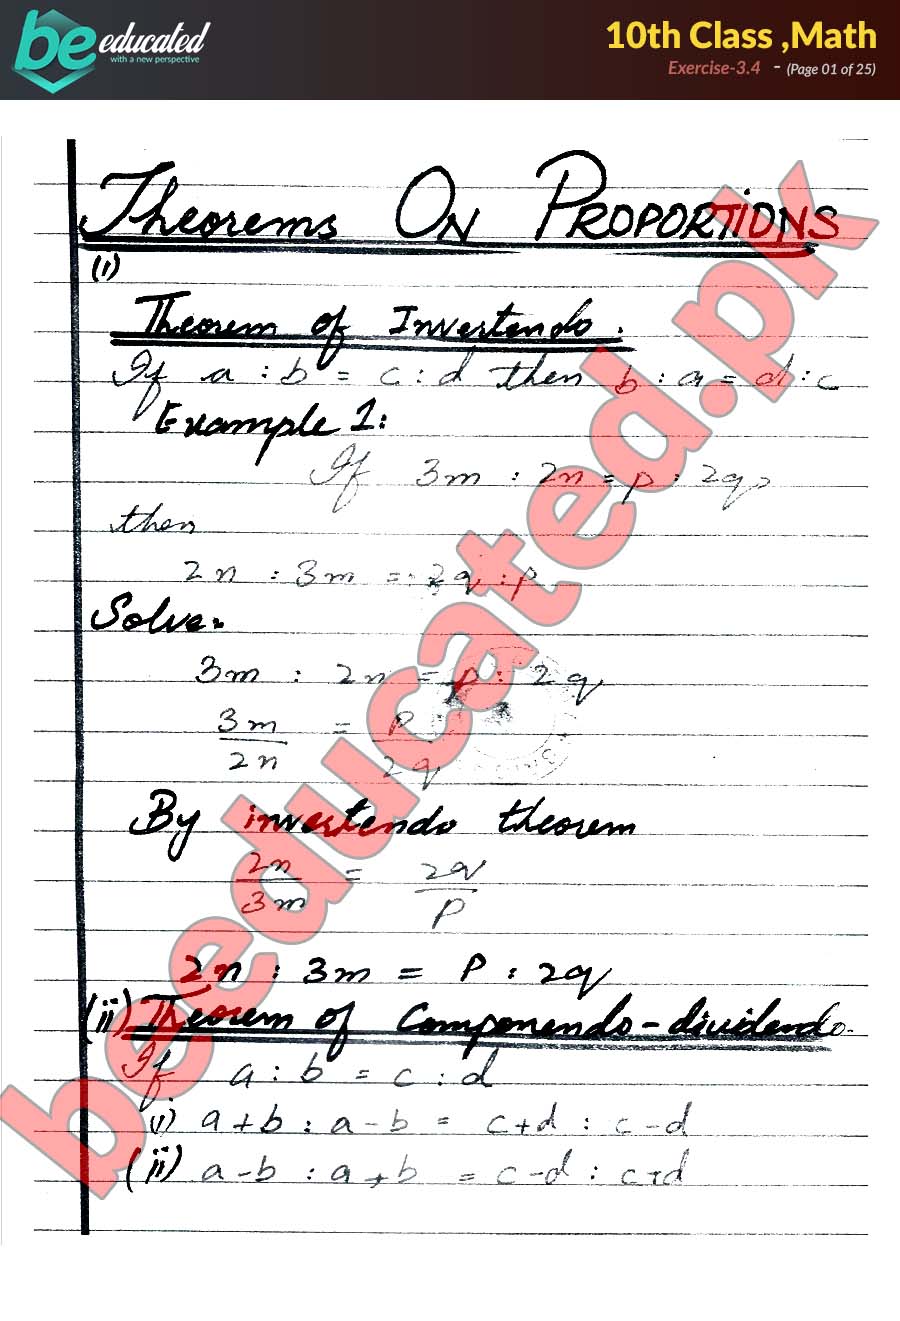 be educated
with a new perspective
10th Class ,Math
Exercise-3.4 - (Page 01 of 25)
Theorems ON PROPORTIONS
(i)
Theorem of Invertendo.
If a : b = c : d then b : a = d : c
Example 1:
If 3m : 2n = p : 2q,
then
2n : 3m = 2q : p
Solve:
3m : 2n = p : 2q
3m/2n = P/2q
By invertendo theorem
2n/3m = 2q/P
2n : 3m = P : 2q
(ii) Theorem of Componendo-dividendo.
If a : b = c : d
(i) a+b : a-b = c+d : c-d
(ii) a-b : a+b = c-d : c+d
beeducated.pk